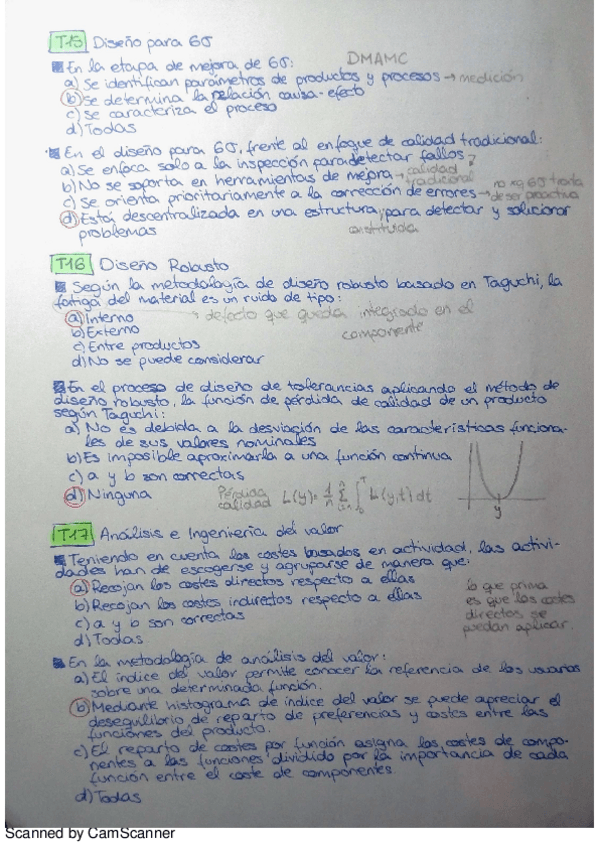 T15 Diseño para 6σ
En la etapa de mejora de 6σ: DMAMC
a) Se identifican parámetros de productos y procesos → medición
b) Se determina la relación causa-efecto
c) Se caracteriza el proceso
d) Todas
En el diseño para 6σ, frente al enfoque de calidad tradicional:
a) Se enfoca solo a la inspección para detectar fallos
b) No se soporta en herramientas de mejora → calidad tradicional
c) Se orienta prioritariamente a la corrección de errores → no xq 6σ trata de ser proactiva
d) Está descentralizada en una estructura, para detectar y solucionar
problemas constituida
T16 Diseño Robusto
Según la metodología de diseño robusto basado en Taguchi, la
fatiga del material es un ruido de tipo:
a) Interno → defecto que queda integrado en el
b) Externo componente
c) Entre productos
d) No se puede considerar
En el proceso de diseño de tolerancias aplicando el método de
diseño robusto, la función de pérdida de calidad de un producto
según Taguchi:
a) No es debida a la desviación de las características funciona-
les de sus valores nominales
b) Es imposible aproximarla a una función continua
c) a y b son correctas
d) Ninguna Pérdida calidad L(y) = 1/n Σ ∫ L(y,t) dt
y
T17 Análisis e Ingeniería del valor
Teniendo en cuenta los costes basados en actividad, las activi-
dades han de escogerse y agruparse de manera que:
a) Recojan los costes directos respecto a ellas
b) Recojan los costes indirectos respecto a ellas
c) a y b son correctas
d) Todas
lo que prima
es que los costes
directos se
puedan aplicar.
En la metodología de análisis del valor:
a) El índice del valor permite conocer la referencia de los usuarios
sobre una determinada función.
b) Mediante histograma de índice del valor se puede apreciar el
desequilibrio de reparto de preferencias y costos entre las
funciones del producto.
c) El reparto de costes por función asigna los costes de compo-
nentes a las funciones dividido por la importancia de cada
función entre el coste de componentes.
d) Todas
Scanned by CamScanner